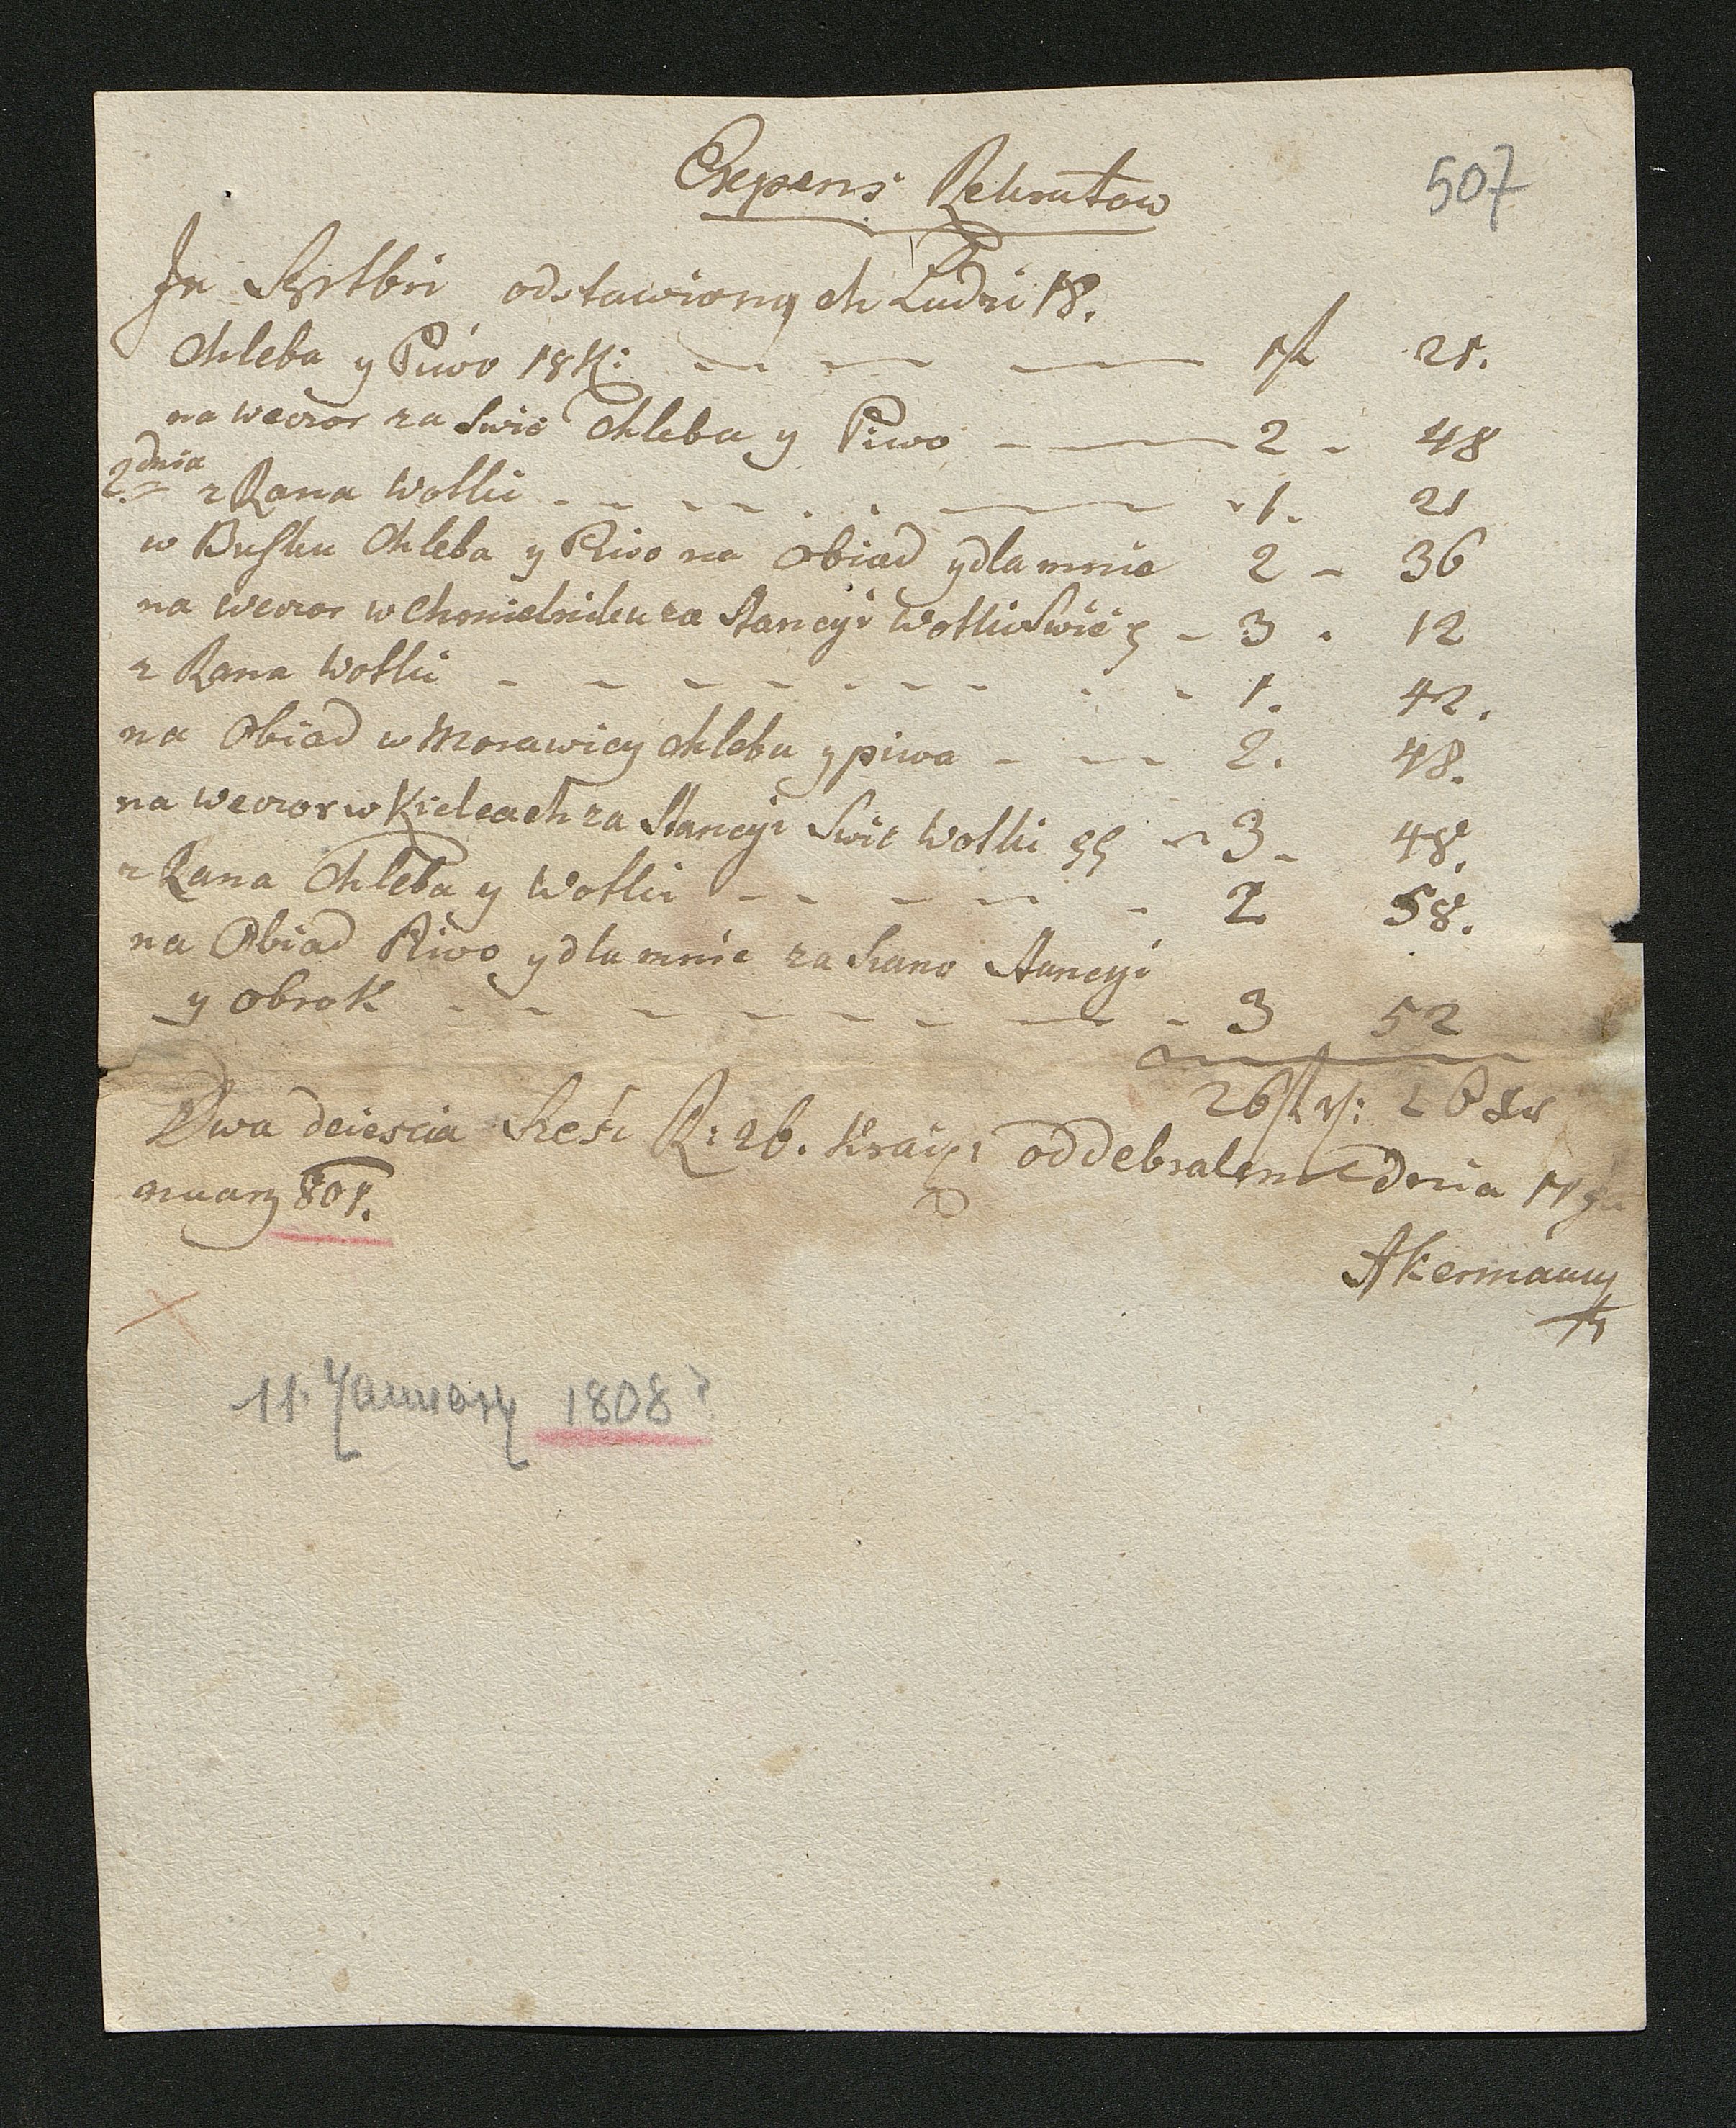 Expens Rekrutow
507
In Szrtbri odstawionych Ludzi 18.
Chleba y Piwo 18 K: — — — 1 f 21.
na weczor za Swic Chleba y Piwo — — 2 - 48
2. dnia z Rana Wotki - - - - . . — - 1. 21
w Busku Chleba y Piwo na Obiad y dla mnie 2 - 36
na weczor w Chmielniku za Stancyi Wotki Swic ς - 3 . 12
z Rana Wotki - - - - - - - - - 1. 42.
na Obiad w Morawicy Chleba y piwa - - - 2. 48.
na weczor w Kielcach za Stancyi Swic Wotki ςς - 3 - 48.
z Rana Chleba y Wotki - - - - - 2 58.
na Obiad Piwo y dla mnie za Siano Stancyi
y obrok - - - - - - - — - 3 52
26 f r: 26 xr
Dwa dziescia Szesc R: 26. Krayc: oddebralem dnia 11 Ja
nuary 801.
Akermann
11. January 1808?